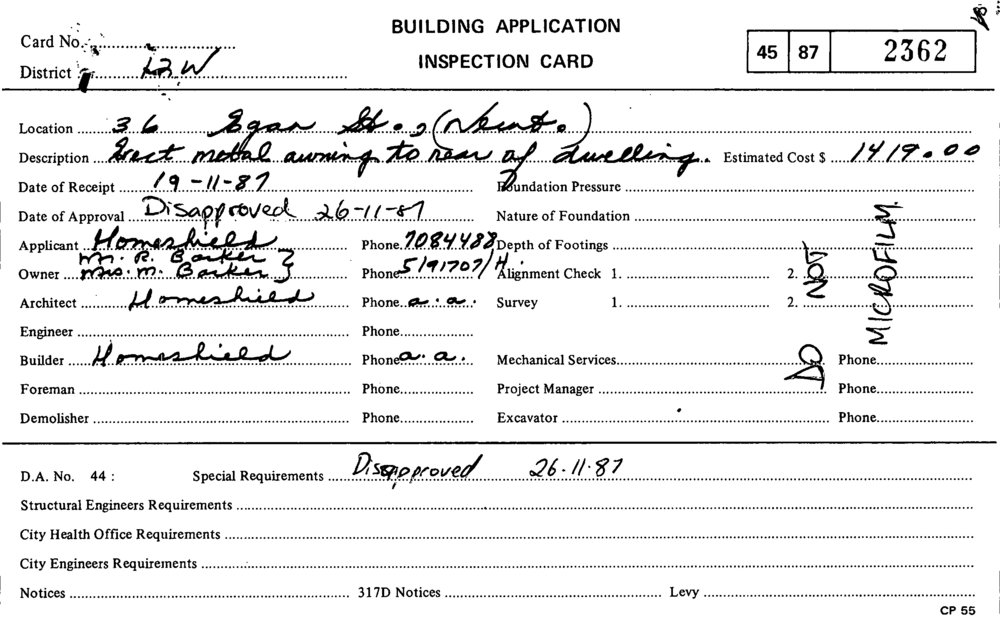 BUILDING APPLICATION
INSPECTION CARD
Card No.
District
45 87 2362
Location 36 Egan St., (Newt.)
Description Erect metal awning to rear of dwelling. Estimated Cost $ 1419.00
Date of Receipt 19-11-87 Foundation Pressure
Date of Approval Disapproved 26-11-87 Nature of Foundation
Applicant Homeshield Phone 7084488 Depth of Footings
Owner Mr. R. Barker } Mrs. M. Barker } Phone 5191707/H. Alignment Check 1. 2.
Architect Homeshield Phone a.a. Survey 1. 2.
Engineer Phone
Builder Homeshield Phone a.a. Mechanical Services Phone
Foreman Phone Project Manager Phone
Demolisher Phone Excavator Phone
DO NOT MICROFILM.
D.A. No. 44 : Special Requirements Disapproved 26.11.87
Structural Engineers Requirements
City Health Office Requirements
City Engineers Requirements
Notices 317D Notices Levy
CP 55